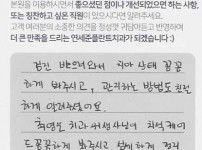 본원을 이용하시면서 좋으셨던 점이나 개선되었으면 하는 사항,
또는 칭찬하고 싶은 직원이 있으시다면 알려주세요.
고객 여러분의 소중한 의견을 정성껏 귀담아듣고 반영하여
더 큰 만족을 드리는 연세준플란트치과가 되겠습니다 :)
검진 받으러와서 치아 상태 꼼꼼
하게 봐주시고, 관리하는 방법도 친절
하게 알려주셨어요.
치과 선생님이 치석 케어
도 꼼꼼하게 봐주시고 설명하게